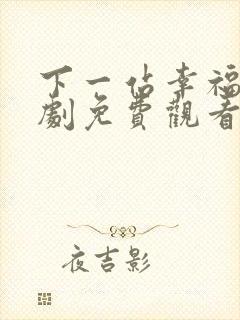 下一佔幸福
劇免費觀看
夜吉影